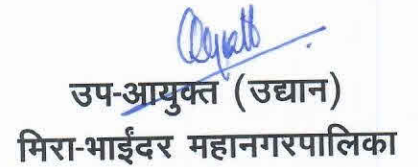 उप-आयुक्त (उद्यान)
मिरा-भाईंदर महानगरपालिका